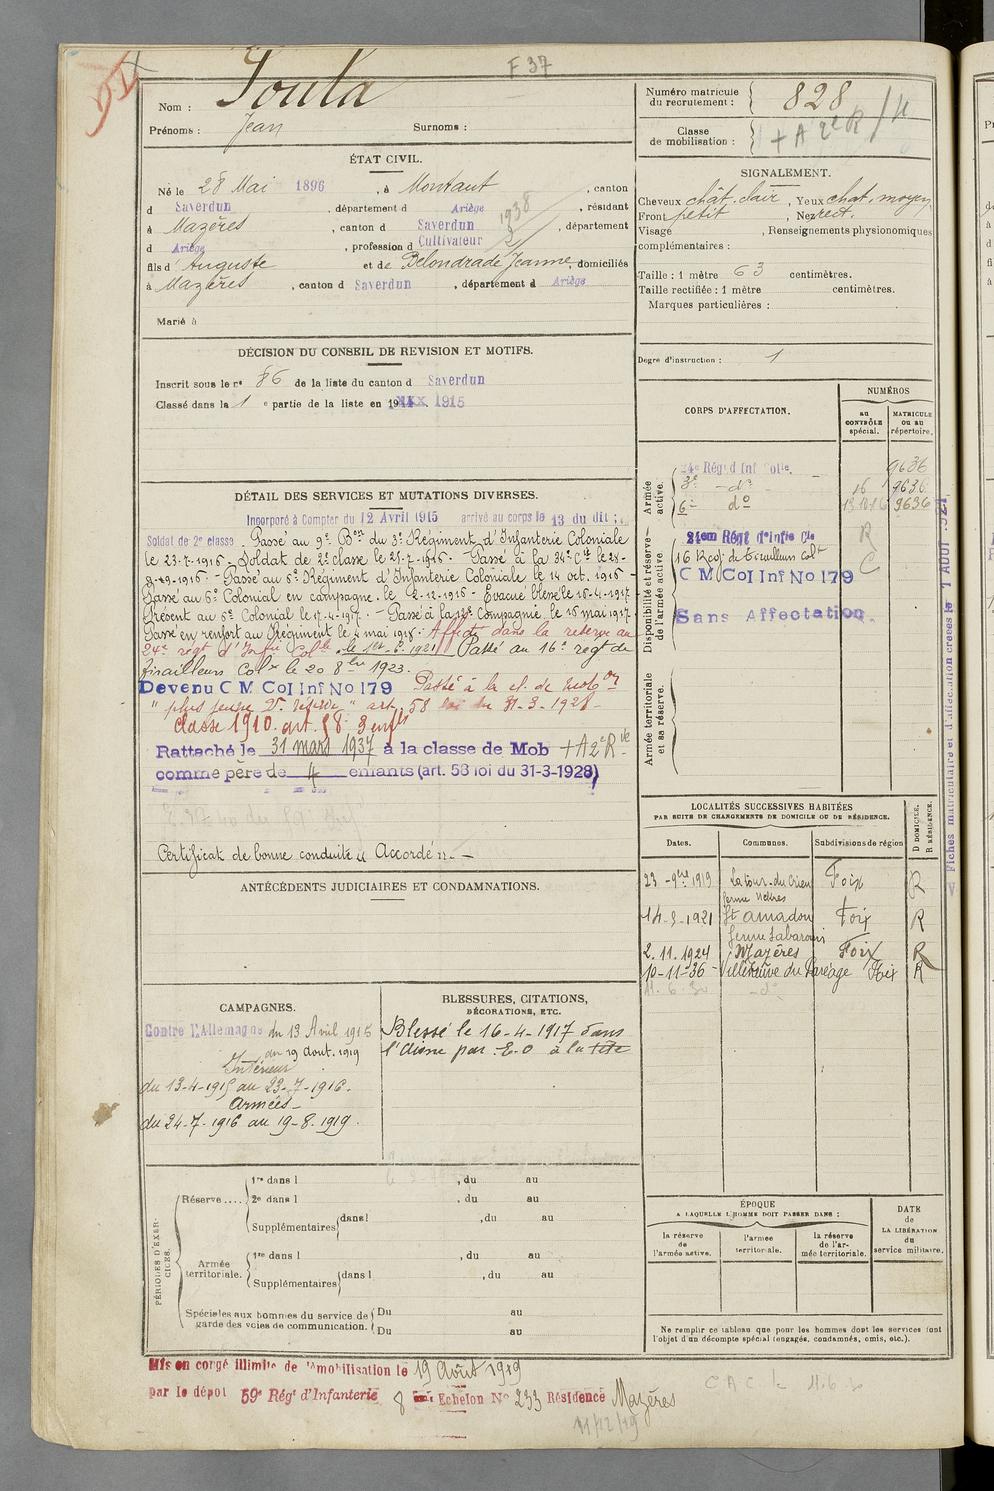 F 37
Nom : Soula
Prénoms : Jean Surnoms :
Numéro matricule du recrutement : 828
Classe de mobilisation : + A 2e R / 4
ÉTAT CIVIL.
Né le 28 Mai 1896, à Montaut, canton
d Saverdun, département d Ariège, résidant
à Mazères, canton d Saverdun, département
d Ariège, profession d Cultivateur
1938
2
fils d' Auguste et de Belondrade Jeanne, domiciliés
à Mazères, canton d Saverdun, département d Ariège
Marié à
SIGNALEMENT.
Cheveux chât. clair, Yeux chat. moyen
Front petit, Nez rect.
Visage , Renseignements physionomiques
complémentaires :
Taille : 1 mètre 63 centimètres.
Taille rectifiée : 1 mètre centimètres.
Marques particulières :
Degré d'instruction : 1
DÉCISION DU CONSEIL DE REVISION ET MOTIFS.
Inscrit sous le n° 86 de la liste du canton d Saverdun
Classé dans la 1 e partie de la liste en 1915
DÉTAIL DES SERVICES ET MUTATIONS DIVERSES.
Incorporé à Compter du 12 Avril 1915 arrivé au corps le 13 du dit ;
Soldat de 2e classe. Passé au 9e Bon du 3e Régiment d'Infanterie Coloniale
le 23-7-1916 - Soldat de 2e classe le 21-7-1916 - Passé à la 34e Cie le 28-
9-1916 - Passé au 6e Régiment d'Infanterie Coloniale le 14 oct. 1916 -
Passé au 6e Colonial en campagne le 2-12-1916 - Evacué blessé le 16-4-1917
Présent au 6e Colonial le 17-4-1917 - Passé à la Compagnie le 16 mai 1917
Passé en renfort au Régiment le 4 mai 1918. Affecté dans la réserve au
24e régt d'Infrie Colle le 1er 6. 1921 Passé au 16e régt de
tirailleurs Colx le 20 8bre 1923.
Devenu C M Col Inf No 179 Passé à la cl. de mobon
" plus jeune De réserve " art. 58 loi du 31-3-1928
classe 1910. art. 58. 3 enfts
Rattaché le 31 mars 1937 à la classe de Mob + A 2e Rve
comme père de 4 enfants (art. 58 loi du 31-3-1928)
Certificat de bonne conduite " Accordé " -
CORPS D'AFFECTATION.
NUMÉROS
AU CONTRÔLE spécial.
MATRICULE OU AU répertoire.
Armée active.
24e Régt d'Inf Colle. 9636
3e - do - 16 9636
6e do 9636
Disponibilité et réserve de l'armée active.
24em Régt d'Infie Cle R
16 R col de tirailleurs colx C
C M Col Inf No 179
Sans Affectation
Armée territoriale et sa réserve.
Fiches matriculaire et d'affectation créées le 1 AOUT 1921
LOCALITÉS SUCCESSIVES HABITÉES
PAR SUITE DE CHANGEMENTS DE DOMICILE OU DE RÉSIDENCE.
Dates. Communes. Subdivisions de région D DOMICILE. R RÉSIDENCE.
23 - 9bre 1919 La tour-du-Crieu Foix R
14-3-1921 St Amadou Foix R
2. 11. 1924 Mazères Foix R
10-11-36 - Villeneuve du Paréage Foix R
11. 6. 30 - do
ANTÉCÉDENTS JUDICIAIRES ET CONDAMNATIONS.
CAMPAGNES.
Contre l'Allemagne du 13 Avril 1915
au 19 aout. 1919
Intérieur
du 13-4-1915 au 23-7-1916.
Armées -
du 24-7-1916 au 19-8-1919.
BLESSURES, CITATIONS, DÉCORATIONS, ETC.
Blessé le 16-4-1917 dans
l'Aisne par E.O à la tête
PÉRIODES D'EXERCICES.
Réserve .... 1re dans l , du au
2e dans l , du au
Supplémentaires dans l , du au
Armée territoriale. 1re dans l , du au
Supplémentaires dans l , du au
Spéciales aux hommes du service de garde des voies de communication. Du au
Du au
ÉPOQUE
A LAQUELLE L'HOMME DOIT PASSER DANS :
la réserve de l'armée active.
l'armée territoriale.
la réserve de l'armée territoriale.
DATE de LA LIBÉRATION du service militaire.
Ne remplir ce tableau que pour les hommes dont les services font
l'objet d'un décompte spécial (engagés, condamnés, omis, etc.).
Mis en congé illimité de démobilisation le 19 Août 1919
par le dépôt 59e Régt d'Infanterie 8 Echelon No 233 Résidence Mazères
11/12/19